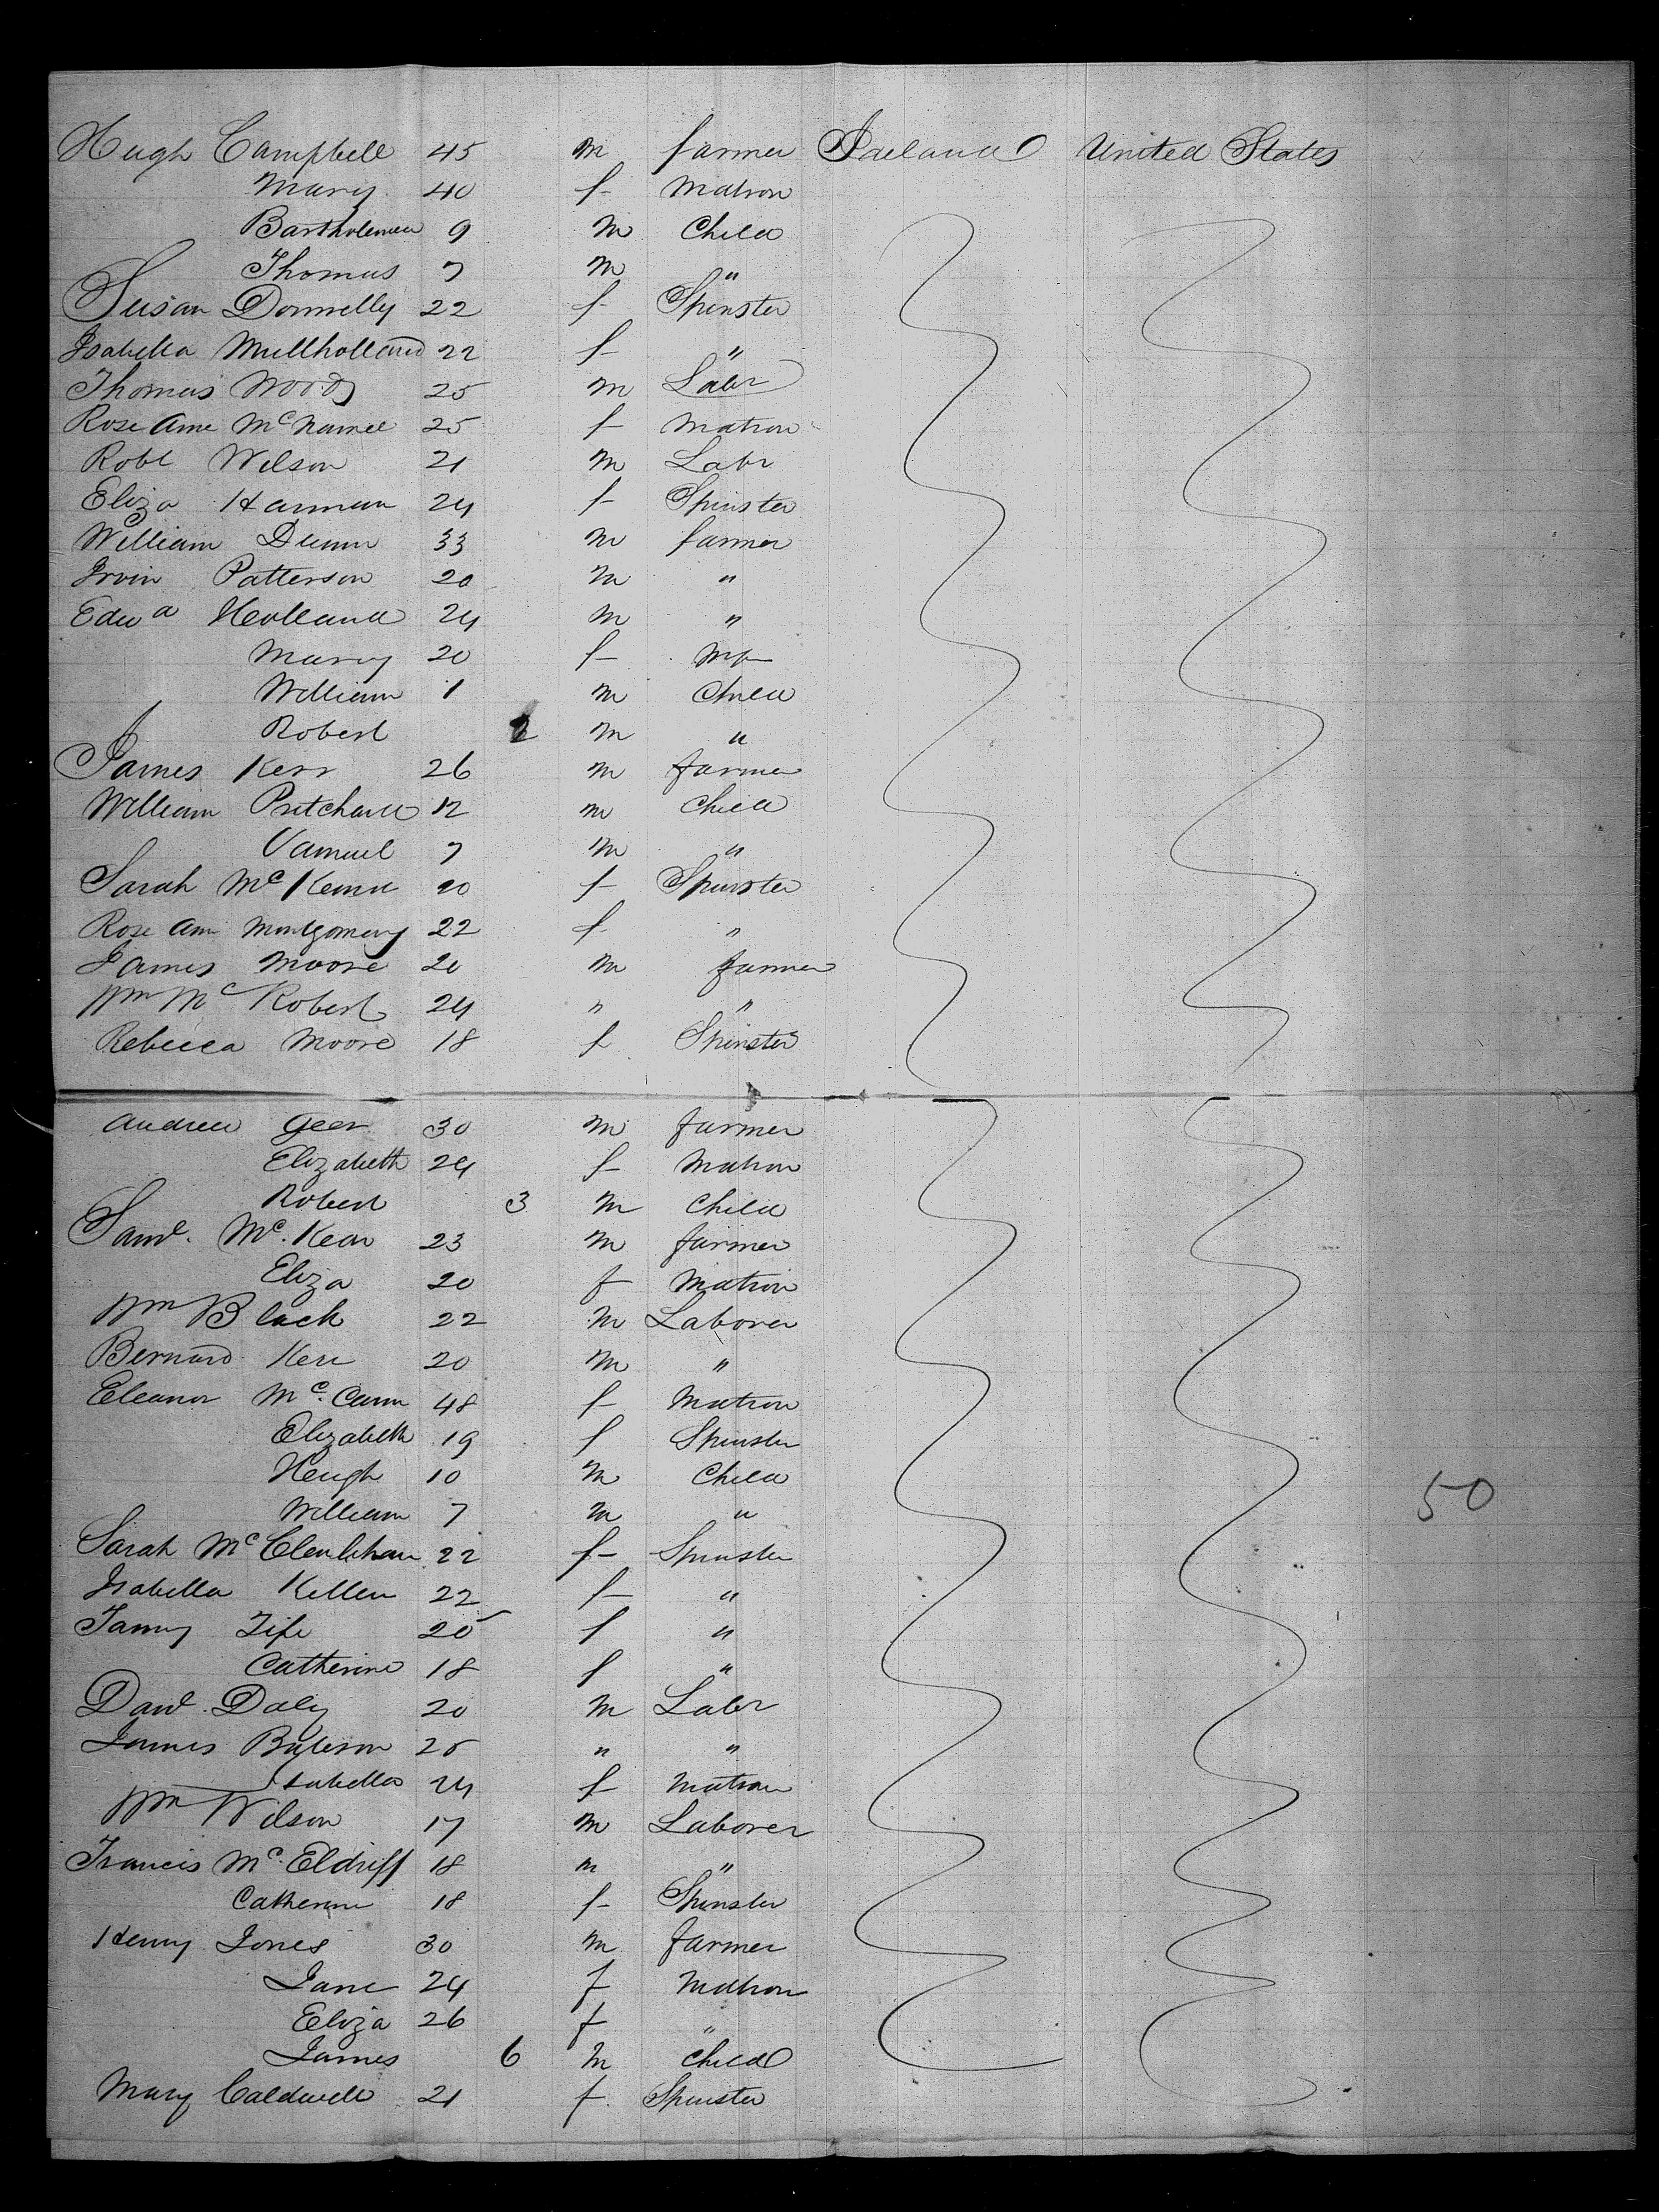 Hugh Campbell 45 m farmer Ireland United States
Mary 40 f Matron
Bartholomew 9 m Child
Thomas 7 m "
Susan Donnelly 22 f Spinster
Isabella Mullholland 22 f "
Thomas Woods 25 m Labr
Rose Ann McNamee 25 f Matron
Robt Wilson 21 m Labr
Eliza Hannan 24 f Spinster
William Dunn 33 m farmer
Irvin Patterson 20 m "
Edwd Holland 24 m "
Mary 20 f
William 1 m Child
Robert 2 m "
James Kerr 26 m farmer
William Pritchard 12 m Child
Samuel 7 m "
Sarah McKenna 20 f Spinster
Rose Ann Montgomery 22 f "
James Moore 20 m farmer
Wm McRobert 24 " "
Rebecca Moore 18 f Spinster
Andrew Geer 30 m farmer
Elizabeth 24 f Matron
Robert 3 m Child
Saml. Mc.Kean 23 m farmer
Eliza 20 f Matron
Wm Black 22 m Laborer
Bernard Kerr 20 m "
Eleanor Mc.Cann 48 f Matron
Elizabeth 19 f Spinster
Hugh 10 m Child
50
William 7 m "
Sarah 22 f Spinster
Isabella Killen 22 f "
Fanny Fife 20 f "
Catherine 18 f "
Danl. Daly 20 m Labr
James Bateson 25 " "
Isabella 24 f Matron
Wm Wilson 17 m Laborer
Francis Mc.Eldriff 18 m "
Catherine 18 f Spinster
Henry Jones 30 m farmer
Jane 24 f Matron
Eliza 26 f "
James 6 m Child
Mary Caldwell 21 f Spinster